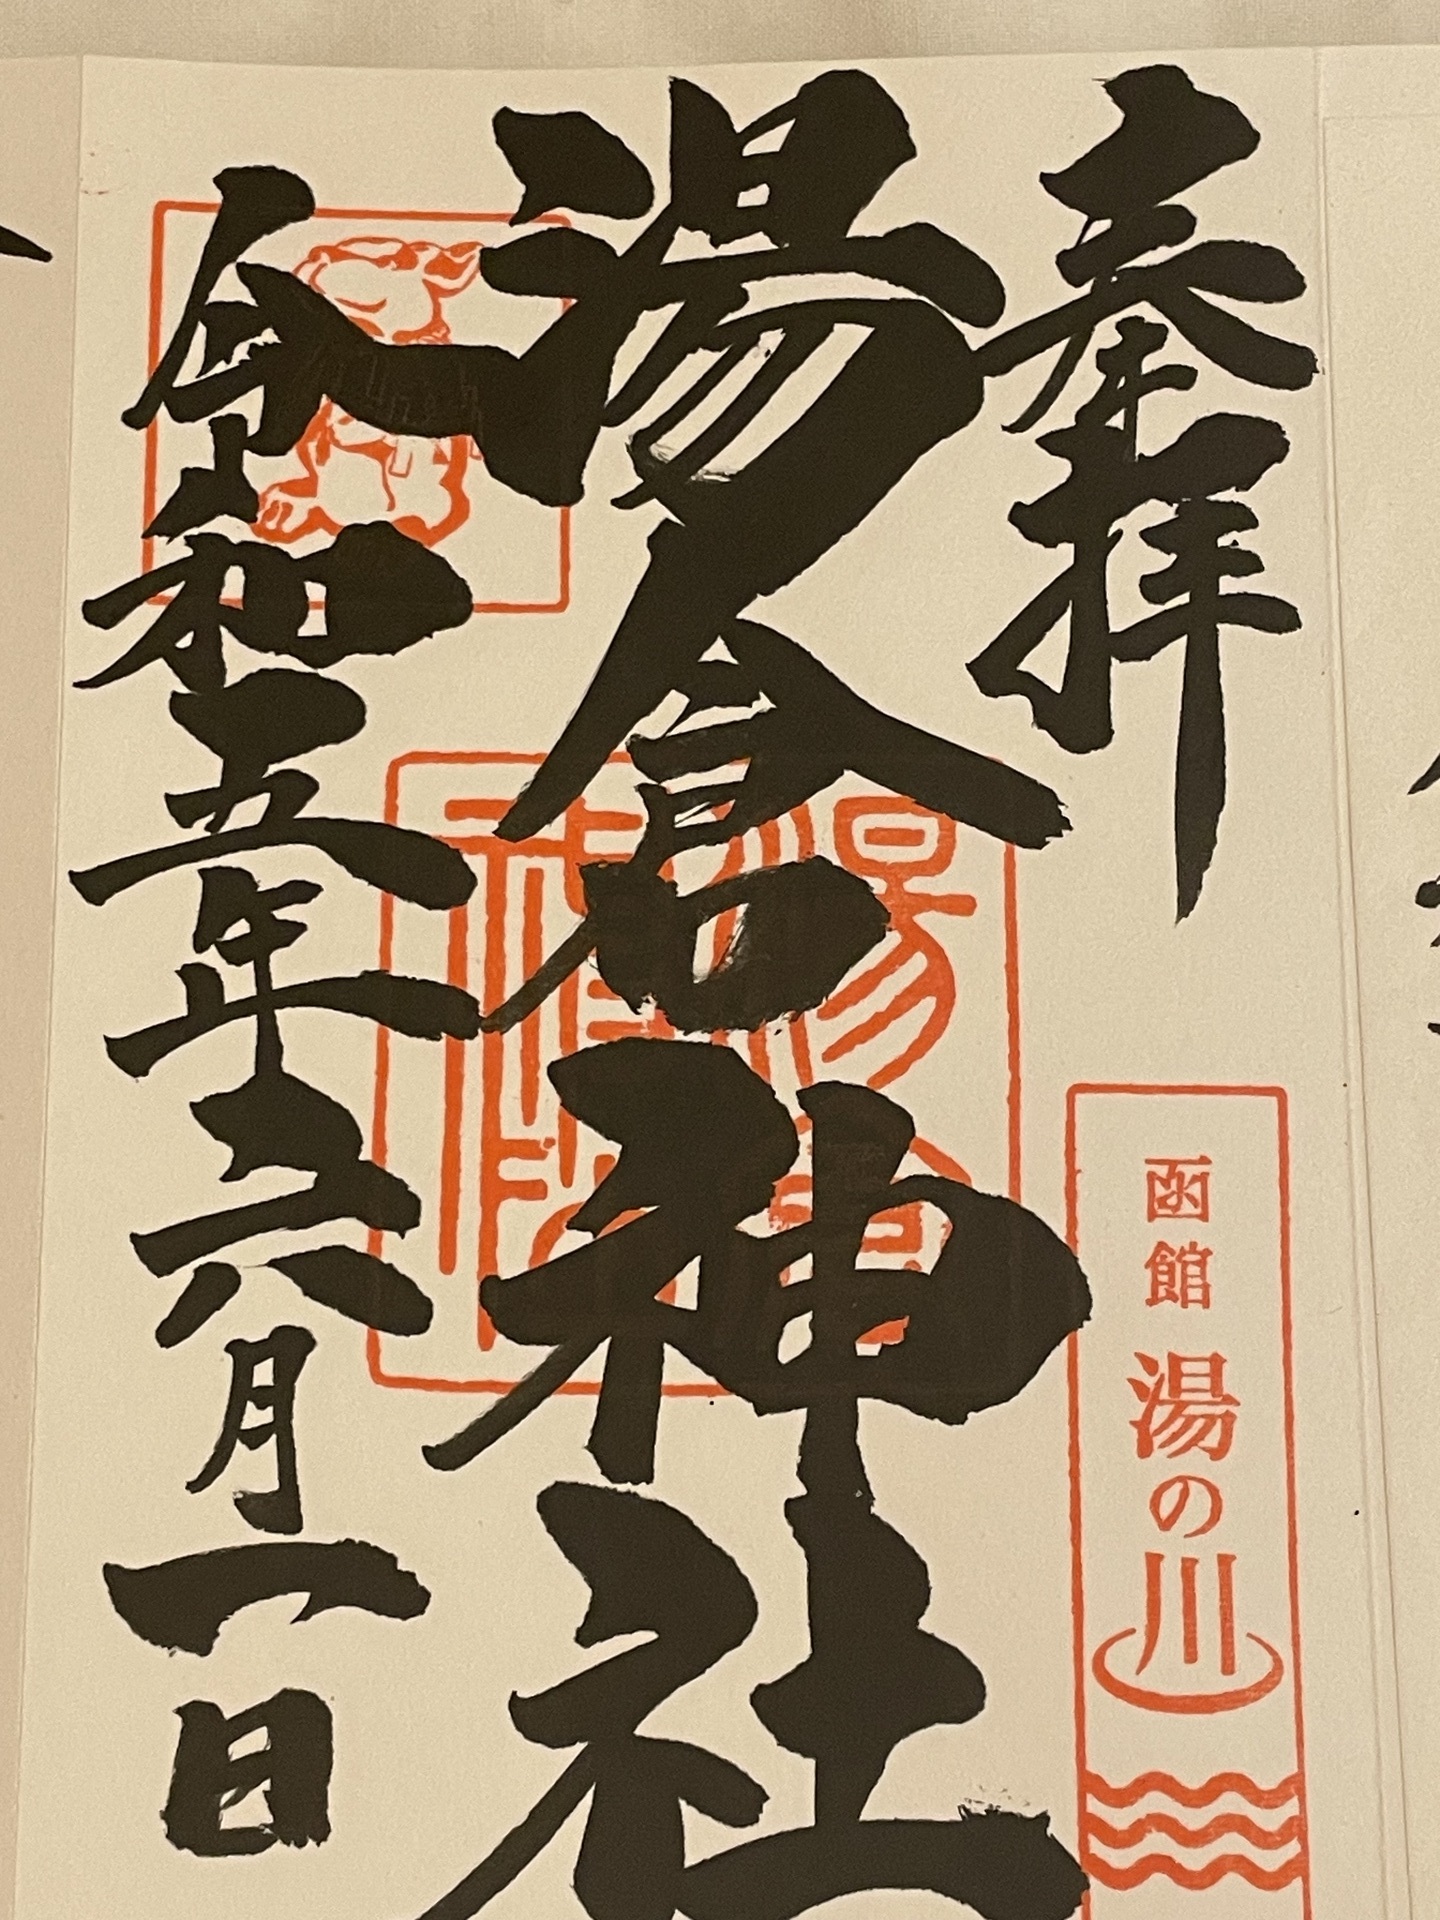 奉拝
函館 湯の川
湯倉神社
令和五年六月一日